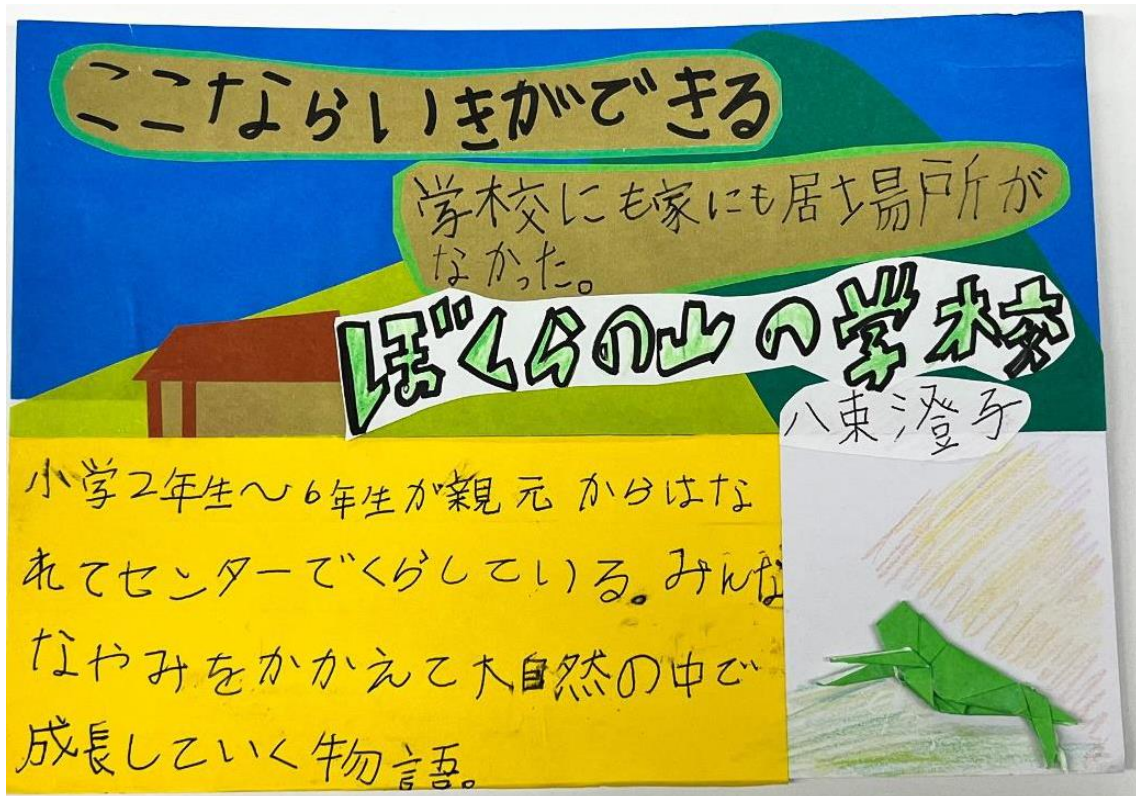 ここならいきができる
学校にも家にも居場所が
なかった。
ぼくらの山の学校
八束澄子
小学2年生～6年生が親元からはな
れてセンターでくらしている。みんな
なやみをかかえて大自然の中で
成長していく物語。